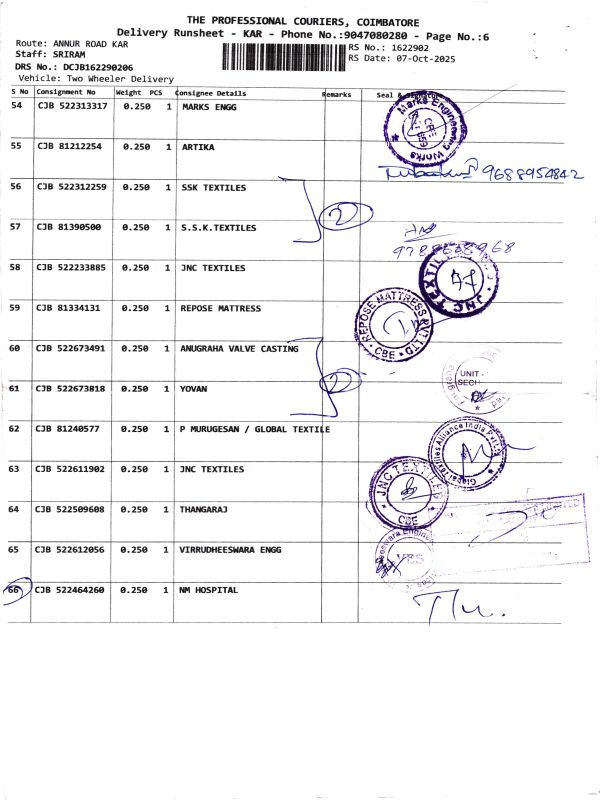 THE PROFESSIONAL COURIERS, COIMBATORE
Delivery Runsheet - KAR - Phone No.:9047080280 - Page No.:6
Route: ANNUR ROAD KAR
RS No.: 1622902
Staff: SRIRAM
RS Date: 07-Oct-2025
DRS No.: DCJB162290206
Vehicle: Two Wheeler Delivery
S No Consignment No Weight PCS Consignee Details Remarks Seal &
54 CJB 522313317 0.250 1 MARKS ENGG
Marks Engineering Works
55 CJB 81212254 0.250 1 ARTIKA
9688954842
56 CJB 522312259 0.250 1 SSK TEXTILES
2
57 CJB 81390500 0.250 1 S.S.K.TEXTILES
58 CJB 522233885 0.250 1 JNC TEXTILES
JNC TEXTILES
59 CJB 81334131 0.250 1 REPOSE MATTRESS
REPOSE MATTRESS PVT LTD CBE
60 CJB 522673491 0.250 1 ANUGRAHA VALVE CASTING
UNIT -
2
61 CJB 522673818 0.250 1 YOVAN
62 CJB 81240577 0.250 1 P MURUGESAN / GLOBAL TEXTILE
Global Textiles Alliance India Pvt Ltd
63 CJB 522611902 0.250 1 JNC TEXTILES
JNC TEXTILES CBE
64 CJB 522509608 0.250 1 THANGARAJ
65 CJB 522612056 0.250 1 VIRRUDHEESWARA ENGG
VES
66 CJB 522464260 0.250 1 NM HOSPITAL